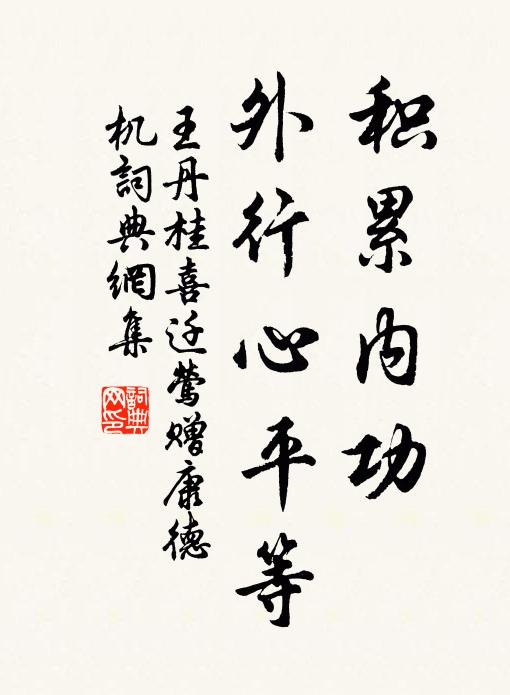 积累内功
外行心平等
王丹桂喜迁莺赠康德
机词典網集
詞典
网印